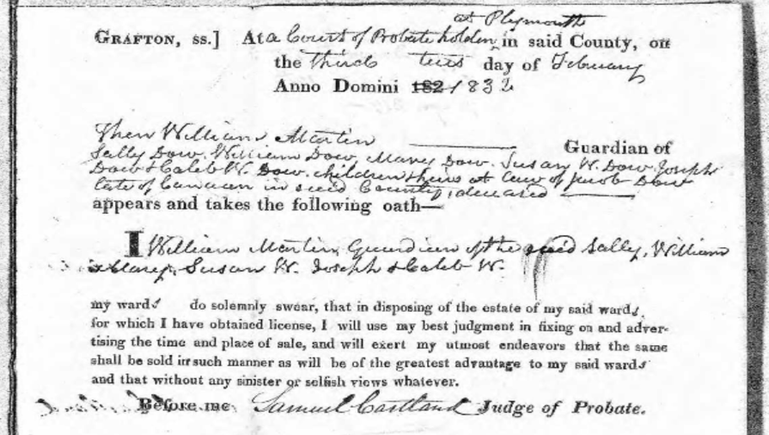 at Plymouth
GRAFTON, ss.] At a Court of Probate holden in said County, on
the third tues day of February
Anno Domini 182 1832
Then William Martin Guardian of
Sally Dow, William Dow, Mary Dow, Susan W. Dow, Joseph
Dow & Caleb W. Dow, children & heirs at law of Jacob Dow
late of Canaan in said County, deceased
appears and takes the following oath—
I William Martin, Guardian of the said Sally, William
Mary, Susan W. Joseph & Caleb W.
my wards do solemnly swear, that in disposing of the estate of my said wards,
for which I have obtained license, I will use my best judgment in fixing on and adver-
tising the time and place of sale, and will exert my utmost endeavors that the same
shall be sold in such manner as will be of the greatest advantage to my said wards
and that without any sinister or selfish views whatever.
Before me, Samuel Cartland Judge of Probate.